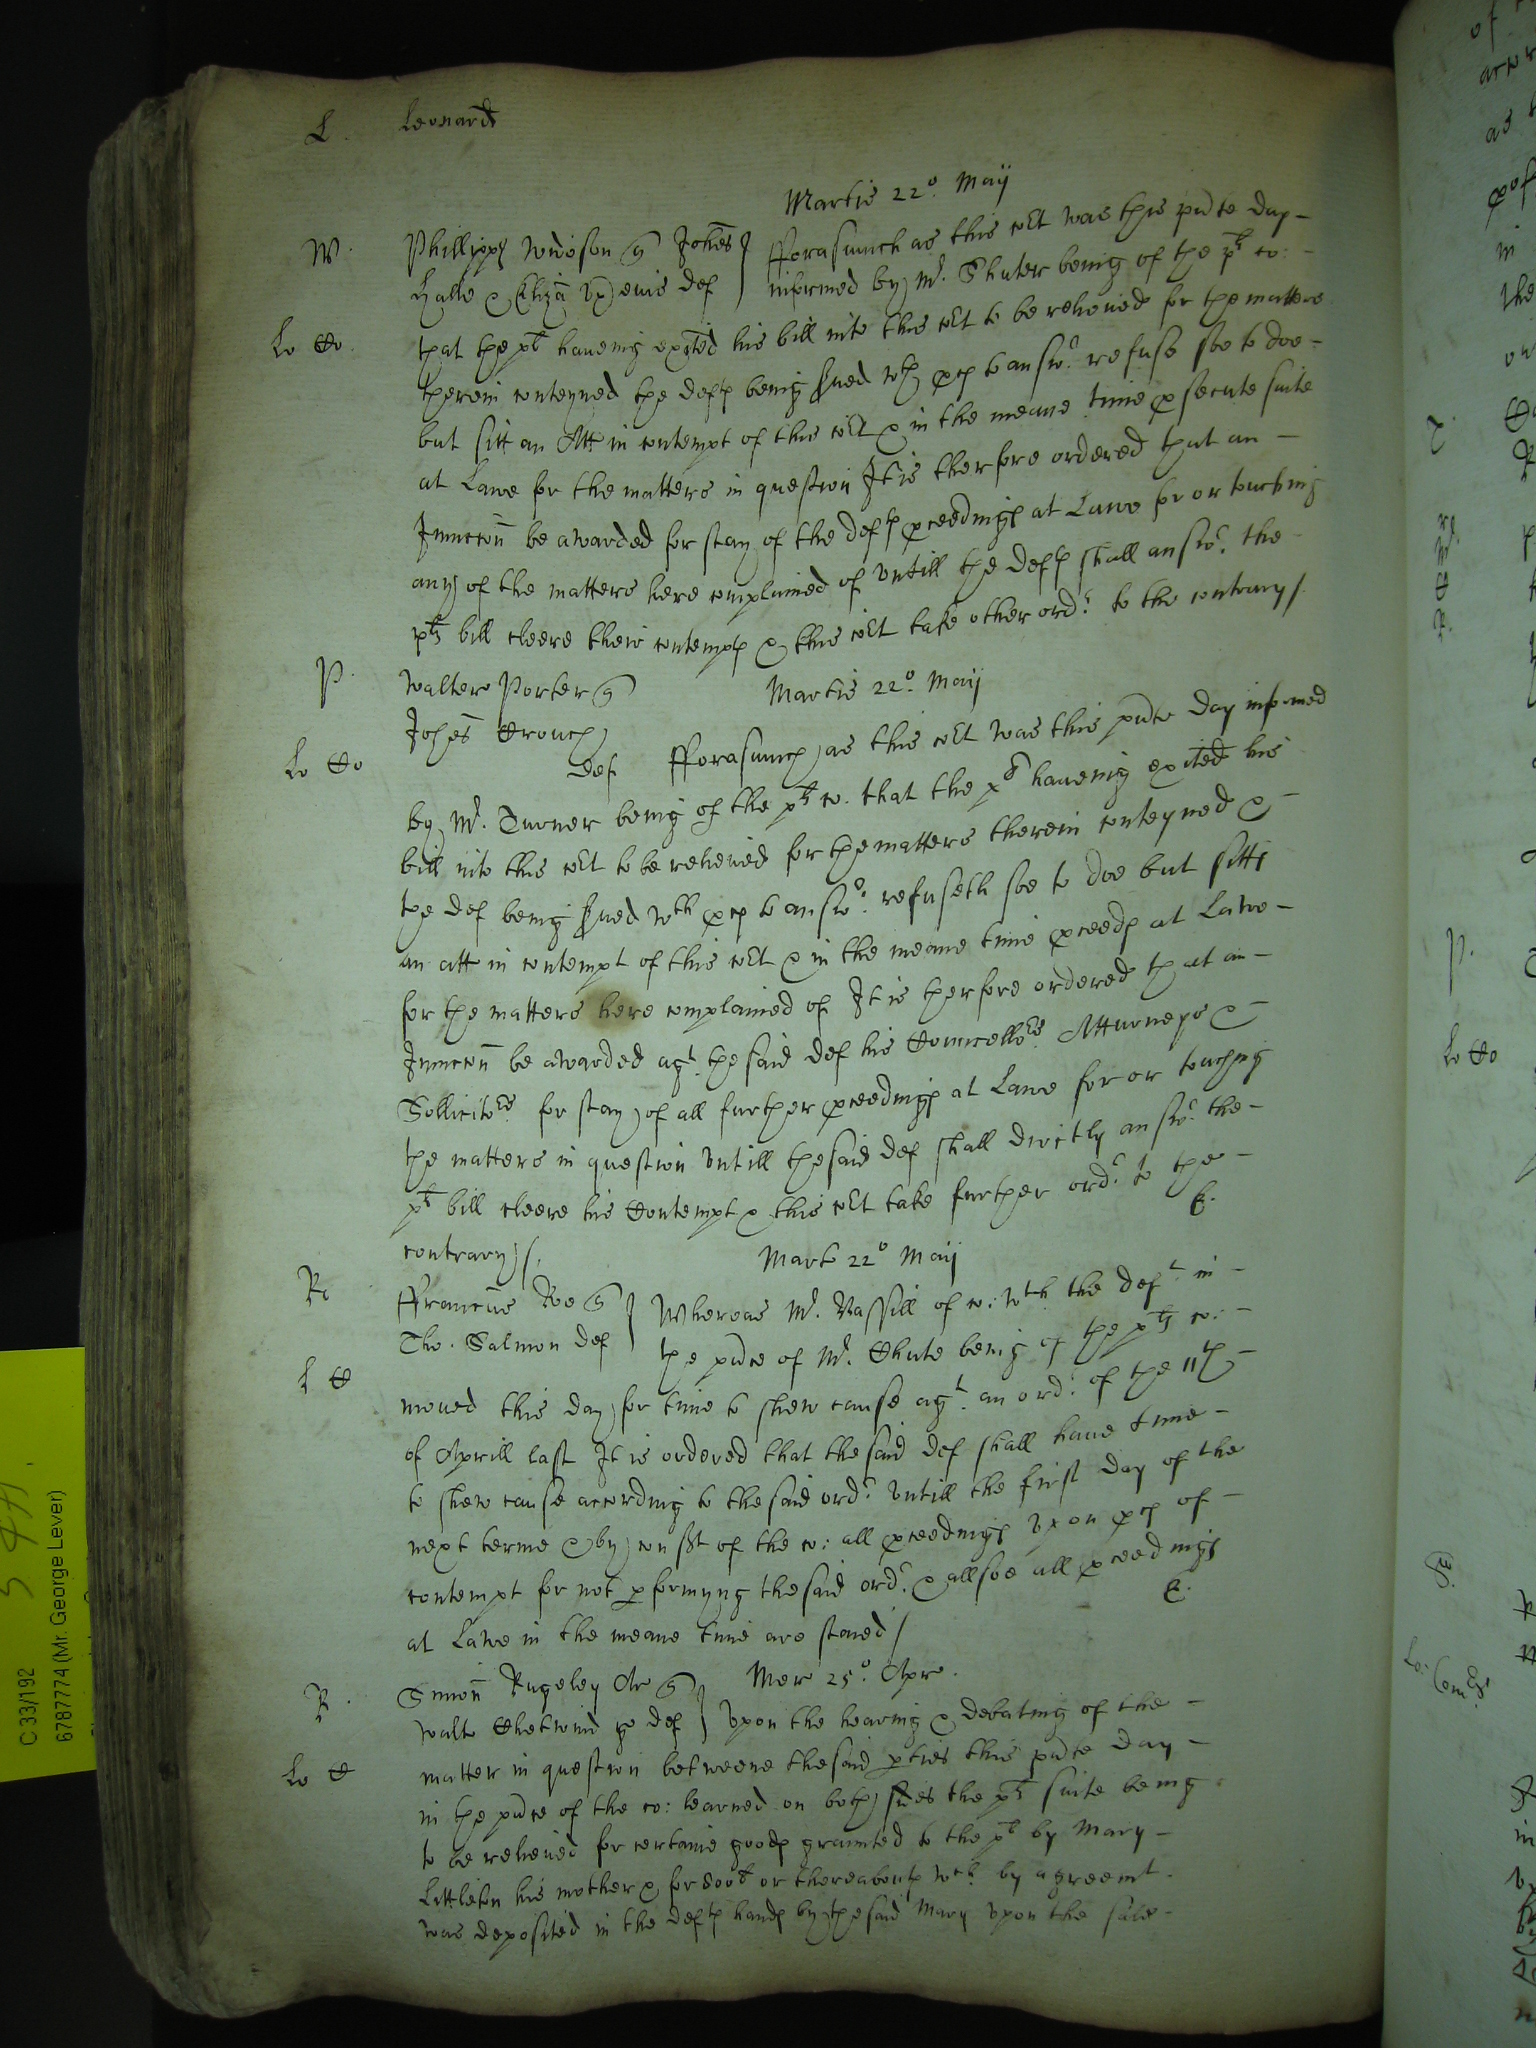 L. Leonard
Martis 22o. Maij
W. Phillippus Wooson q Johes fforasmuch as this cort was this pnte day
Halle & Eliza vx eius def informed by Mr. Shuter being of the pts co:
Lo Co. that the pt haueing exited his bill into this cort to be releiued for the matters
therein conteyned the defts being serued wth pces to answr. refuse soe to doe
but sitt an Att in contempt of this cort & in the meane time psecute suite
at Lawe for the matters in question It is therfore ordered that an
Iniuncon be awarded for stay of the defts pceedings at Lawe for or touching
any of the matters here complained of vntill the defts shall answr. the
pts bill cleere their contempts & this cort take other ordr. to the contrary/.
P. Walterus Porter q Martis 22o. Maij
Johes Crouch
Lo Co def fforasmuch as this cort was this pnte day informed
by Mr. Turner being of the pts co. that the pt haueing exited his
bill into this cort to be releiued for the matters therein conteyned &
the def being serued wth pces to answr. refuseth soe to doe but sitts
an att in contempt of this cort & in the meane time pceeds at Lawe
for the matters here complained of It is therfore ordered that an
Iniuncon be awarded agt. the said def his Councellors Atturneys &
Sollicitors for stay of all further pceedings at Lawe for or touching
the matters in question vntill the said def shall dirctly answr. the
pts bill cleere his Contempt & this cort take further ordr. to the
contrary/. E.
Mart 22o Maij
Ro ffranciscus Roe q Whereas Mr. Vassill of co: wth the deft in
Tho. Salmon def the pnce of Mr. Chute being of the pts co:
L C moued this day for time to shew cause agt. an ordr. of the 11th
of Aprill last It is ordered that the said def shall haue time
to shew cause according to the said ordr. vntill the first day of the
next terme & by consent of the co: all pceedings vpon pces of
contempt for not pformyng the said ordr. & allsoe all pceedings
at Lawe in the meane time are staied/ E.
R. Simon Rugeley Ar q Mer 25o. Apr.
Walt Chetwind ge def Vpon the hearing & debating of the
Lo C matter in question betweene the said pties this pnte day
in the pnce of the co: learned on both sides the pts suite being
to be releiued for certaine goods graunted to the pt by Mary
Littleton his mother & for 800l or thereabouts wch. by agreemt.
was deposited in the defts hands by the said Mary vpon the sale
C 33/192
6787774 (Mr. George Lever)
P.
Lo Co